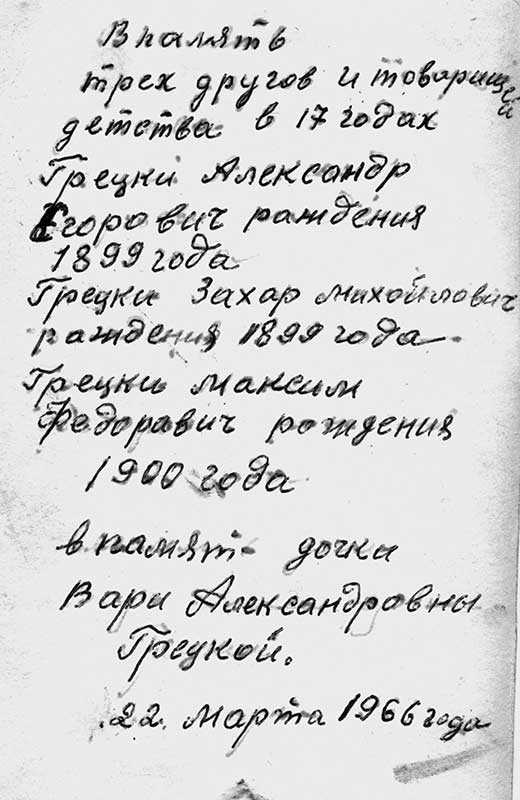 В память
трех другов и товарищей
детства в 17 годах
Грецки Александр
Егорович раждения
1899 года
Грецки Захар Михойлович
раждения 1899 года
Грецки Максим
Федоравич рождения
1900 года
в памят дочки
Вари Александравны
Грецкой.
22. Марта 1966 года